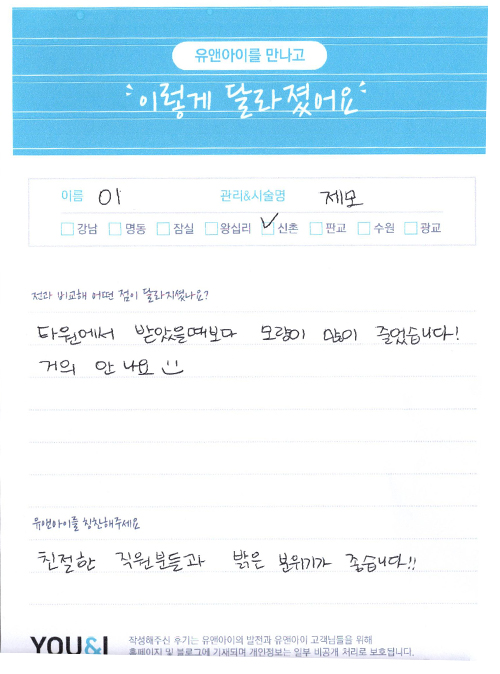 유앤아이를 만나고
이렇게 달라졌어요
이름 이 관리&시술명 제모
강남 명동 잠실 왕십리 신촌 판교 수원 광교
전과 비교해 어떤 점이 달라지셨나요?
타원에서 받았을때보다 모량이 많이 줄었습니다!
거의 안 나요
유앤아이를 칭찬해주세요
친절한 직원분들과 밝은 분위기가 좋습니다!!
YOU&I 작성해주신 후기는 유앤아이의 발전과 유앤아이 고객님들을 위해
홈페이지 및 블로그에 기재되며 개인정보는 일부 비공개 처리로 보호됩니다.